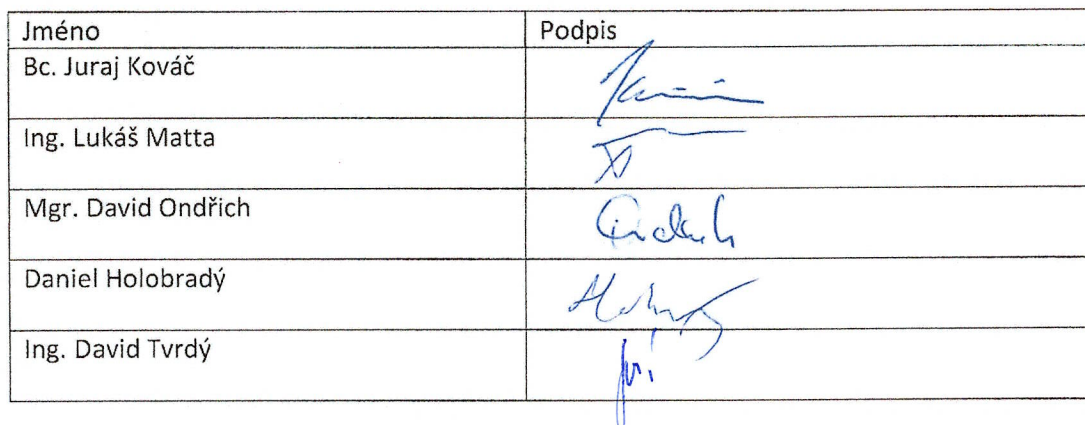 Jméno Podpis
Bc. Juraj Kováč
Ing. Lukáš Matta
Mgr. David Ondřich
Daniel Holobradý
Ing. David Tvrdý